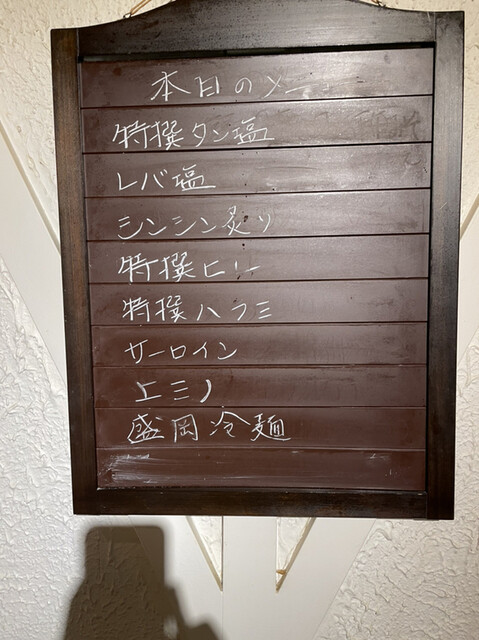 本日のメー
特撰タン塩
レバ塩
シンシン炙り
特撰ヒレー
特撰ハラミ
サーロイン
上ミノ
盛岡冷麺